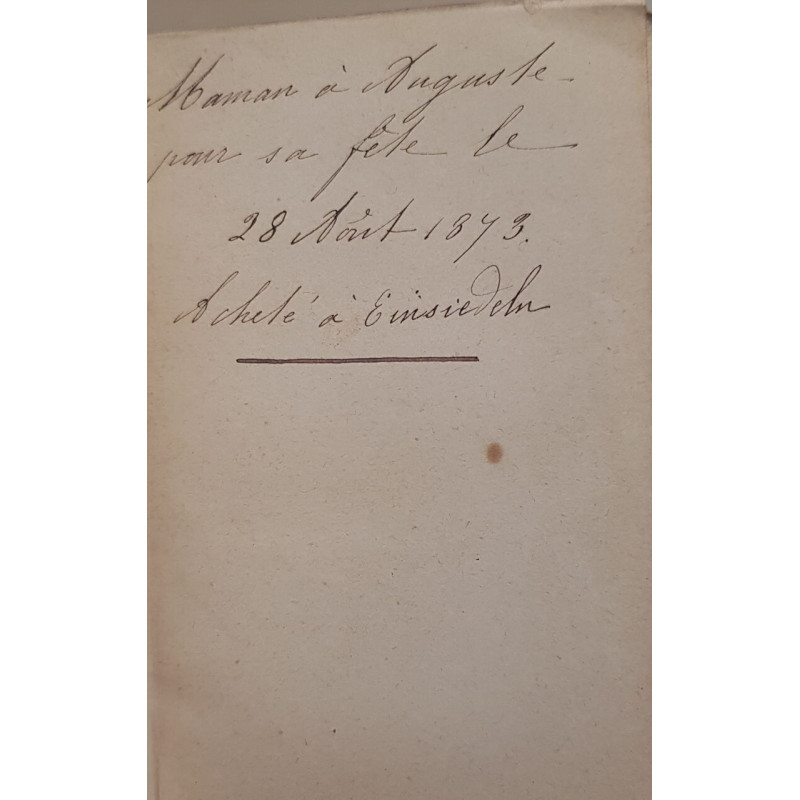 Maman à Auguste
pour sa fête le
28 Août 1873.
Acheté à Einsiedeln